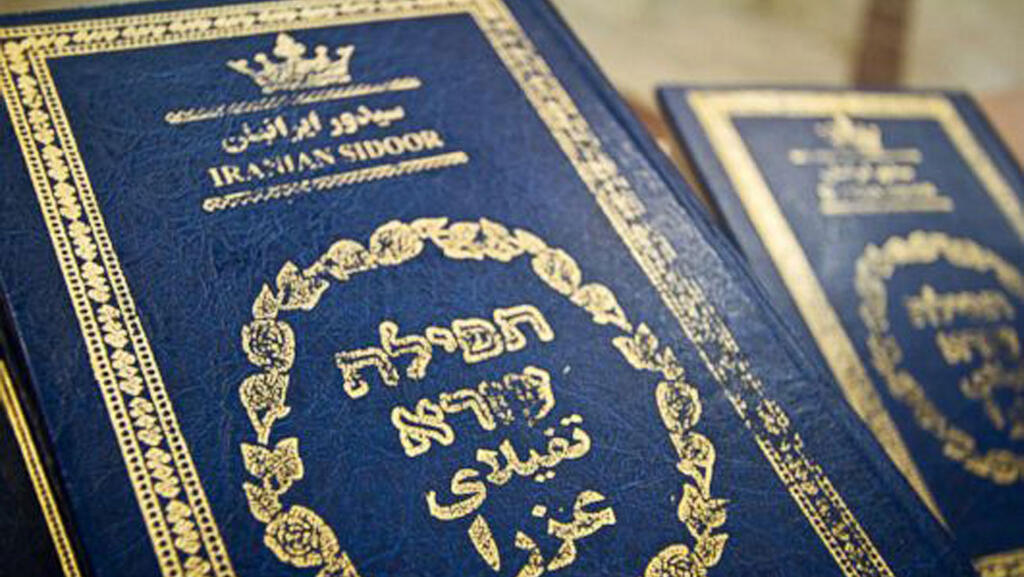 سیدور ایرانیان
IRANIAN SIDOOR
תפילה
עזרא
تفیلای
عزرا